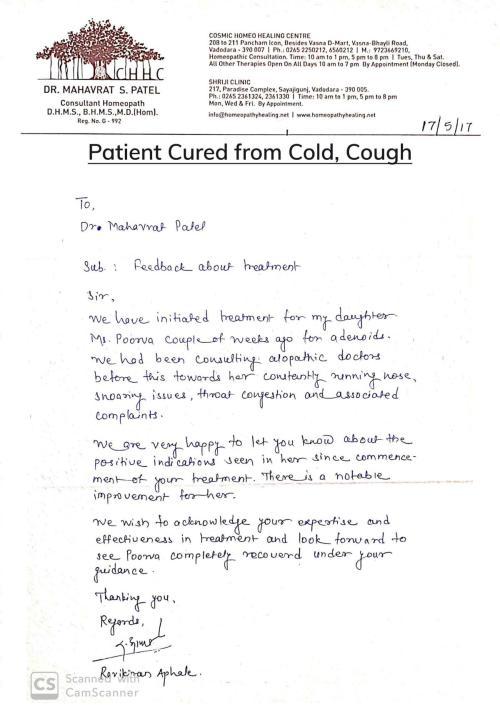 COSMIC HOMEO HEALING CENTRE
208 to 211 Pancham Icon, Besides Vasna D-Mart, Vasna-Bhayli Road,
Vadodara - 390 007 | Ph.: 0265 2250212, 6560212 | M.: 9723669210,
Homeopathic Consultation. Time: 10 am to 1 pm, 5 pm to 8 pm | Tues, Thu & Sat.
All Other Therapies Open On All Days 10 am to 7 pm By Appointment (Monday Closed).
CHHC
DR. MAHAVRAT S. PATEL
Consultant Homeopath
D.H.M.S., B.H.M.S.,M.D.(Hom).
Reg. No. G - 992
SHRIJI CLINIC
217, Paradise Complex, Sayajigunj, Vadodara - 390 005.
Ph.: 0265 2361324, 2361330 | Time: 10 am to 1 pm, 5 pm to 8 pm
Mon, Wed & Fri. By Appointment.
info@homeopathyhealing.net | www.homeopathyhealing.net
17/5/17
Patient Cured from Cold, Cough
To,
Dr. Mahavrat Patel
Sub. : Feedback about treatment
Sir,
We have initiated treatment for my daughter
Ms. Poorva couple of weeks ago for adenoids.
We had been consulting alopathic doctors
before this towards her constantly running nose,
snoaring issues, throat congestion and associated
complaints.
We are very happy to let you know about the
positive indications seen in her since commence-
ment of your treatment. There is a notable
improvement for her.
We wish to acknowledge your expertise and
effectiveness in treatment and look forward to
see Poorva completely recoverd under your
guidance.
Thanking you,
Regards,
Ravikiran Aphale.
CS Scanned with
CamScanner